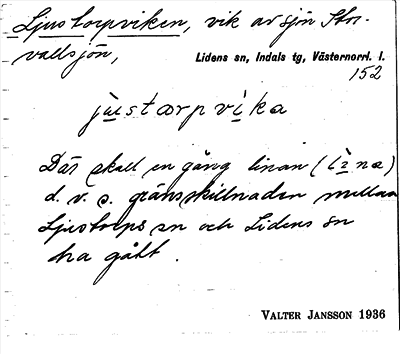 Ljustorpviken, vik av sjön Stor-
vallsjön,
Lidens sn, Indals tg, Västernorrl. l.
152
jùstɷrpvìka
Där skall en gång linan (lìna)
d. v. s. gränsskillnaden mellan
Ljustorps sn och Lidens sn
ha gått.
VALTER JANSSON 1936